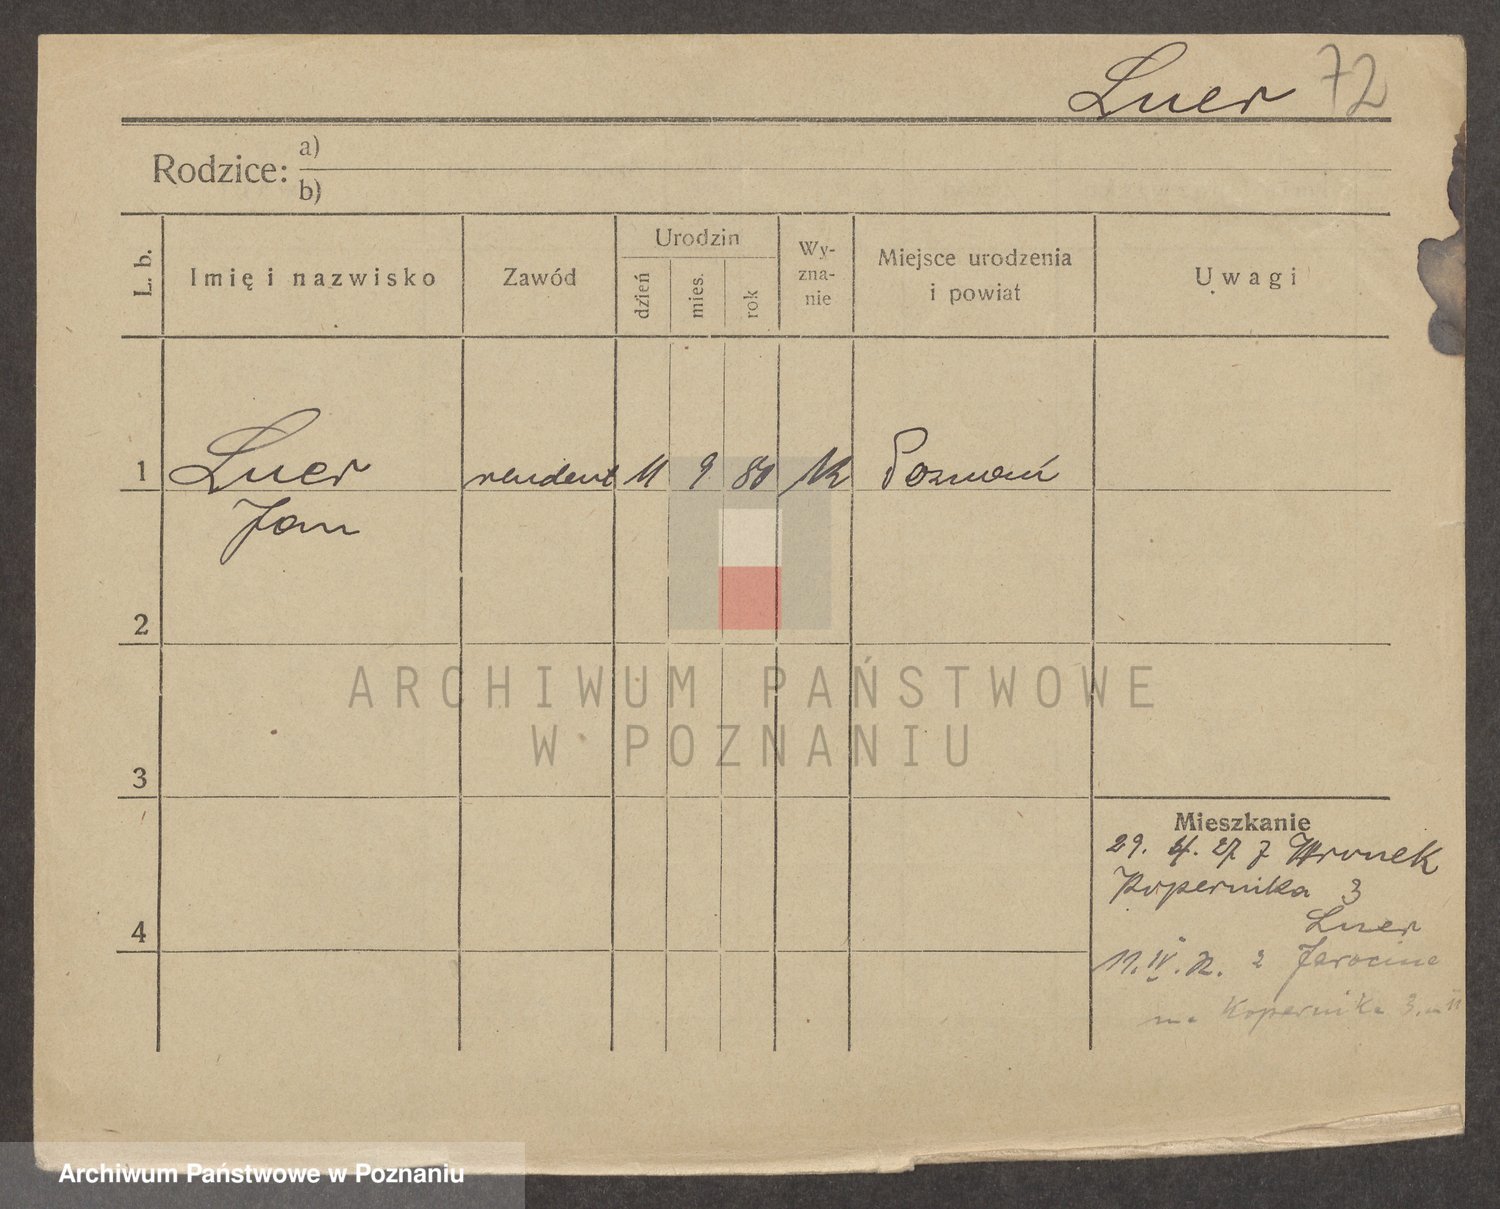 Luer 72
Rodzice: a)
b)
L. b.
Imię i nazwisko
Zawód
Urodzin
dzień
mies.
rok
Wy-
zna-
nie
Miejsce urodzenia
i powiat
Uwagi
1 Luer rendent 11 9 80 rk Poznań
Jan
2
3
4
Mieszkanie
29. 4. 27 z Wronek
Kopernika 3
Luer
11. IV. 32. z Jarocina
na Kopernika 3. m 11
ARCHIWUM PAŃSTWOWE
W POZNANIU
Archiwum Państwowe w Poznaniu